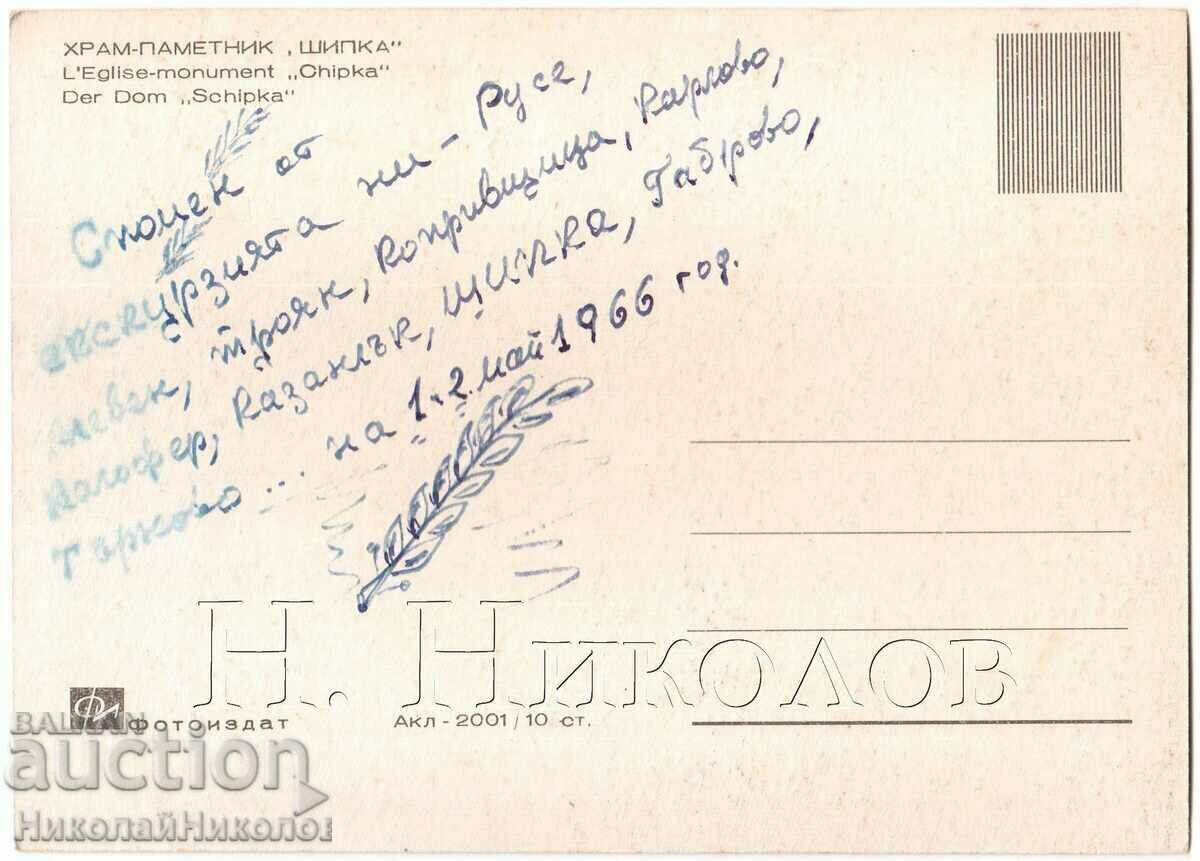 ХРАМ-ПАМЕТНИК „ШИПКА"
L'Eglise-monument „Chipka"
Der Dom „Schipka"
Спомен от
екскурзията ни - Русе,
Плевен, Троян, Копривщица, Карлово,
Калофер, Казанлък, Шипка, Габрово,
Търново ... на 1.2. май 1966 год.
Н. Николов
Фотоиздат
Акл - 2001 / 10 ст.
BALKAN
auction
НиколайНиколов